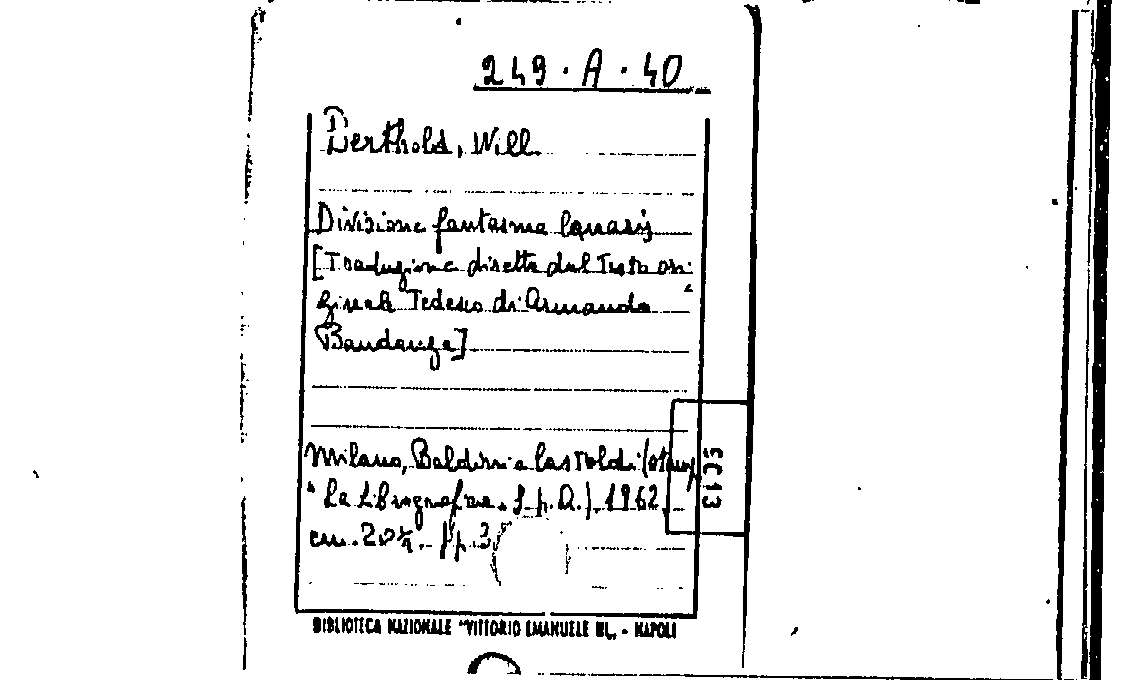 249 · A · 40
Berthold, Will
Divisione fantasma Canaris
[Traduzione diretta dal Testo ori-
ginale Tedesco di Armando
Bandanza]
Milano, Baldini e Castoldi (stamp.
"La Librografica. S. p. A.) 1962
cm. 20½. pp. 3
CC13
BIBLIOTECA NAZIONALE "VITTORIO EMANUELE III„ - NAPOLI